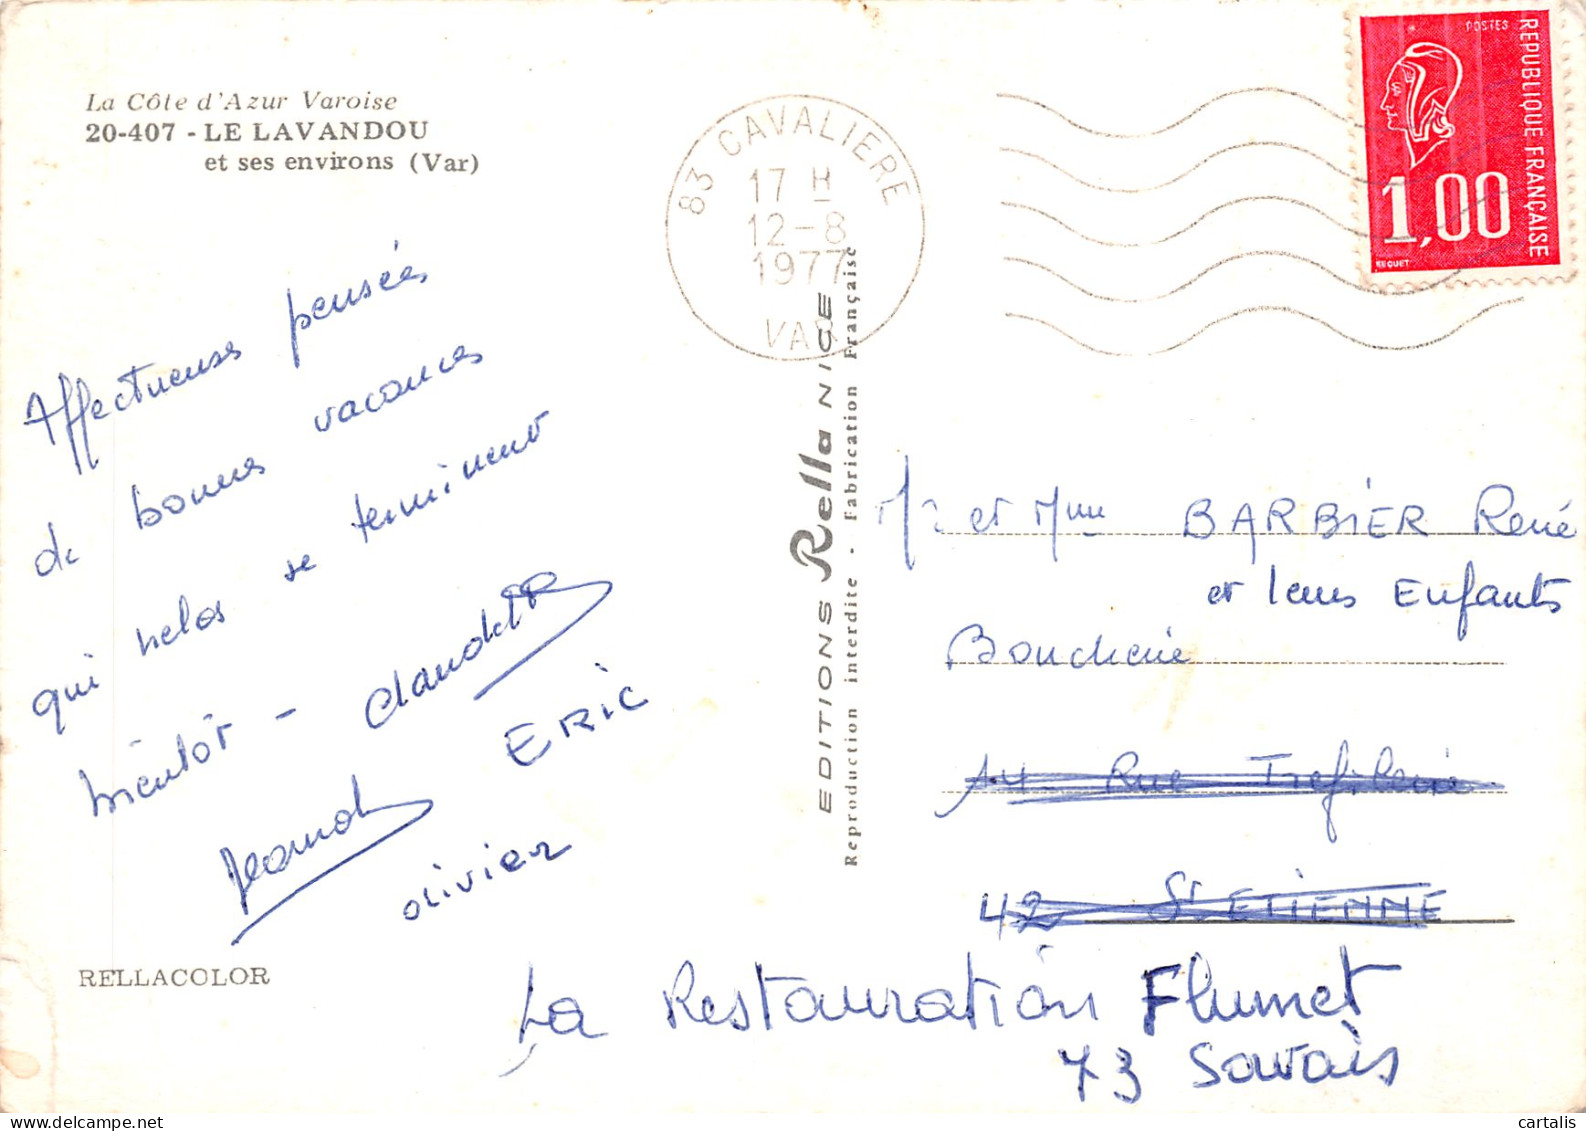 La Côte d'Azur Varoise
20-407 - LE LAVANDOU
et ses environs (Var)
Affectueuses pensées
de bonnes vacances
qui helas se terminent
bientôt - Claudet
ERIC
Jeannot
olivier
RELLACOLOR
83 CAVALIERE
17 H
12-8
1977
VAR
EDITIONS Rella NICE
Reproduction interdite - Fabrication Française
POSTES
REPUBLIQUE FRANÇAISE
1,00
BEQUET
Mr et Mme BARBIER René
et leurs Enfants
Boucherie
14 Rue Trefilerie
42 St ETIENNE
La Restauration Flumet
73 Savois
cartalis